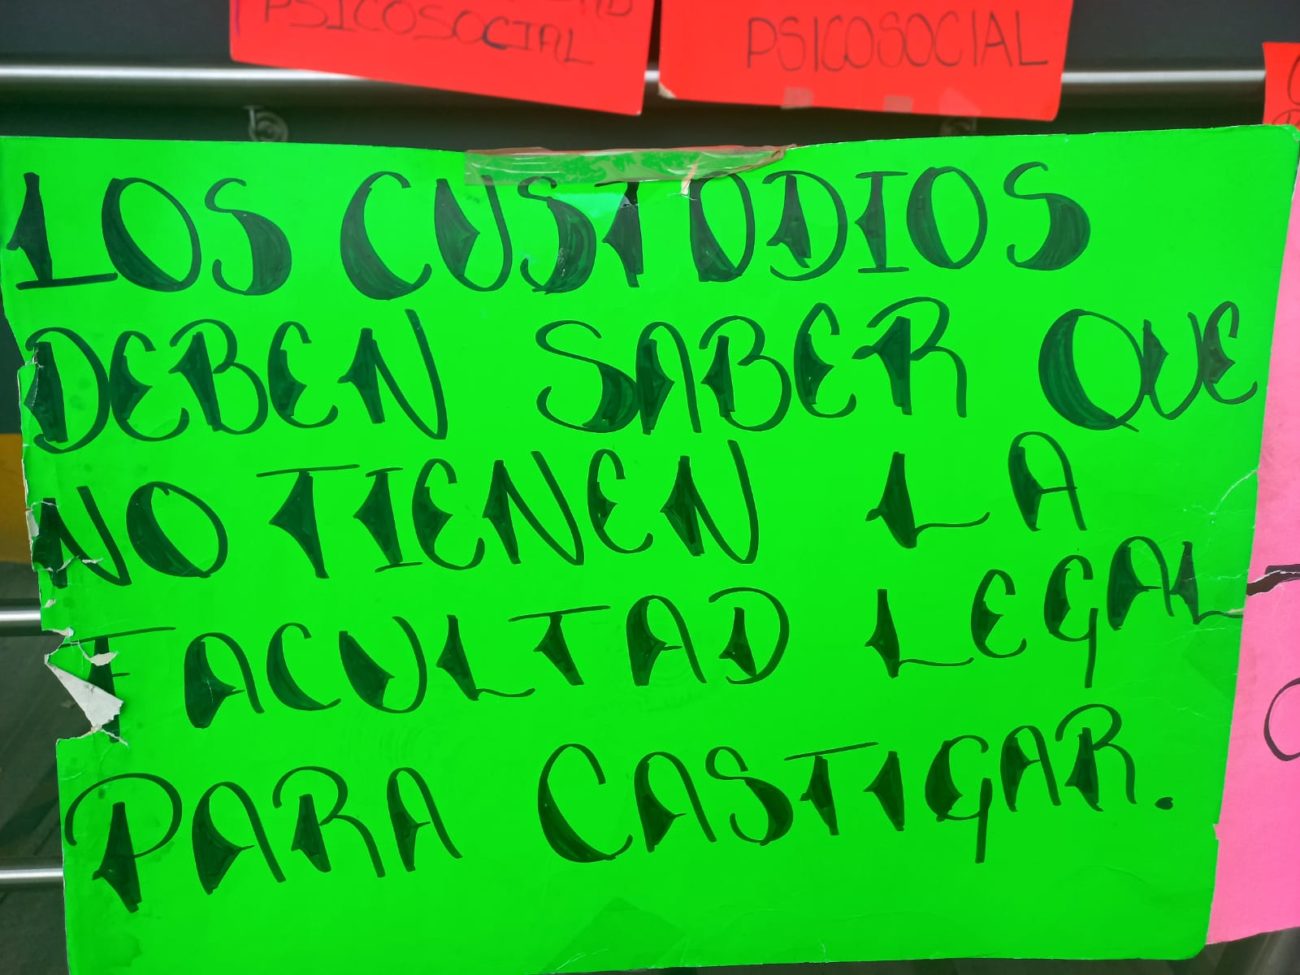 PSICOSOCIAL
PSICOSOCIAL
LOS CUSTODIOS
DEBEN SABER QUE
NO TIENEN LA
FACULTAD LEGAL
PARA CASTIGAR.